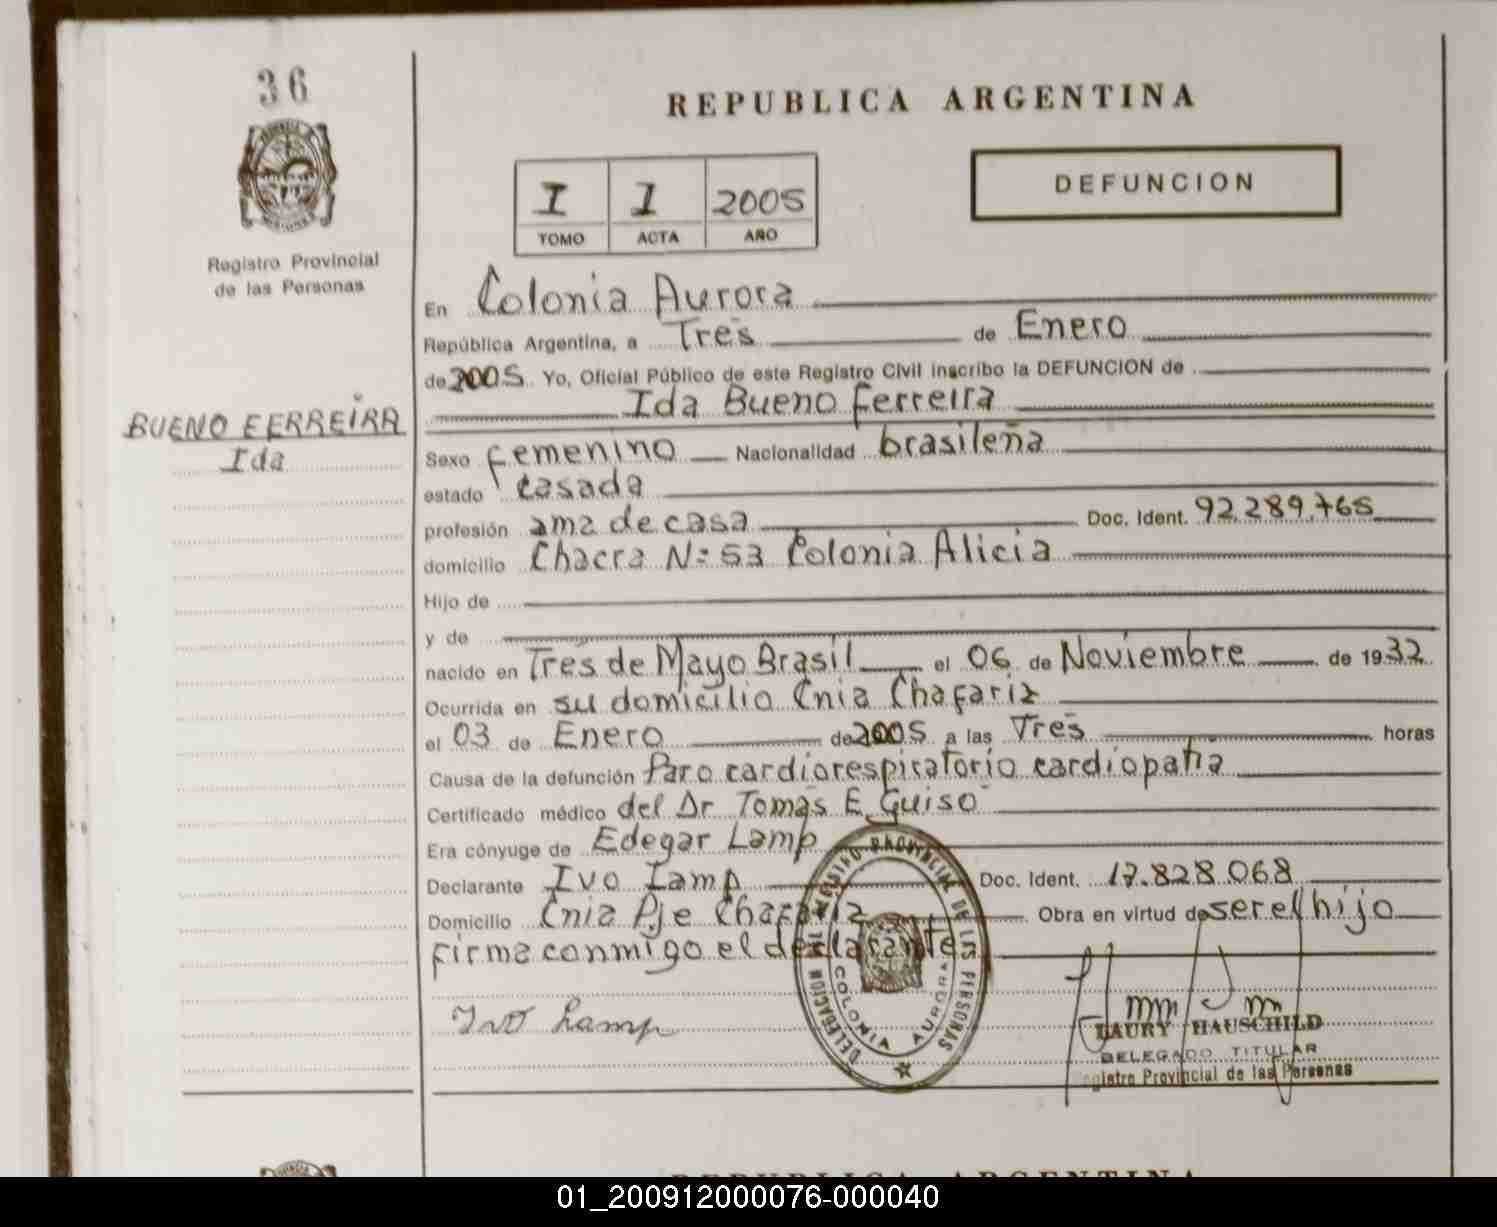 36
Registro Provincial
de las Personas
BUENO FERREIRA
Ida
REPUBLICA ARGENTINA
I 1 2005
TOMO ACTA AÑO
DEFUNCION
En Colonia Aurora
República Argentina, a Tres de Enero
de 2005. Yo, Oficial Público de este Registro Civil inscribo la DEFUNCION de
Ida Bueno Ferreira
Sexo femenino Nacionalidad brasileña
estado casada
profesión ama de casa Doc. Ident. 92.289.765
domicilio Chacra N= 53 Colonia Alicia
Hijo de
y de
nacido en Tres de Mayo Brasil el 06 de Noviembre de 1932
Ocurrida en su domicilio Cnia Chafariz
el 03 de Enero de 2005 a las Tres horas
Causa de la defunción Paro cardiorespiratorio cardiopatia
Certificado médico del Dr Tomas E Guiso
Era cónyuge de Edegar Lamp
Declarante Ivo Lamp Doc. Ident. 17.828.068
Domicilio Cnia Pje Chafariz Obra en virtud de ser el hijo
firma conmigo el declarante
Ivo Lamp
DELEGACION REGISTRO PROVINCIAL DE LAS PERSONAS
COLONIA AURORA
LAURY HAUSCHILD
DELEGADO TITULAR
Registro Provincial de las Personas
REPUBLICA ARGENTINA
01_200912000076-000040